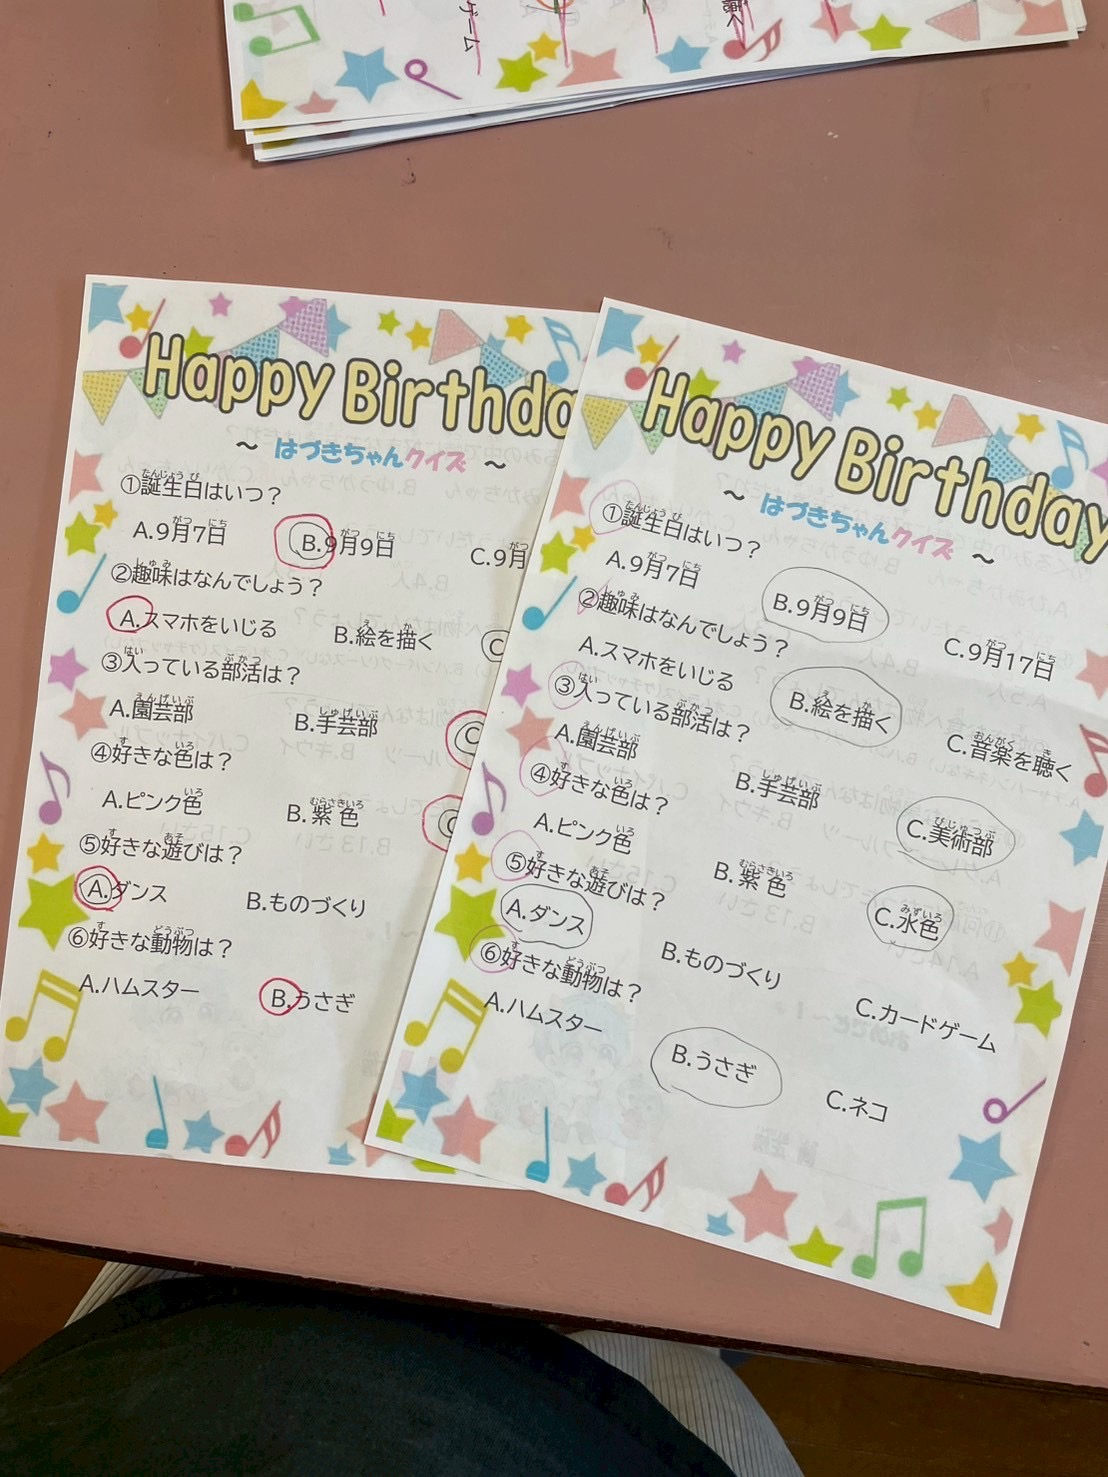 ゲーム
Happy Birthda
～ はづきちゃんクイズ ～
①誕生日はいつ？
A.9月7日 B.9月9日 C.9月
②趣味はなんでしょう？
A.スマホをいじる B.絵を描く C
③入っている部活は？
A.園芸部 B.手芸部 C
④好きな色は？
A.ピンク色 B.紫色 C
⑤好きな遊びは？
A.ダンス B.ものづくり
⑥好きな動物は？
A.ハムスター B.うさぎ
Happy Birthday
～ はづきちゃんクイズ ～
①誕生日はいつ？
A.9月7日 B.9月9日 C.9月17日
②趣味はなんでしょう？
A.スマホをいじる B.絵を描く C.音楽を聴く
③入っている部活は？
A.園芸部 B.手芸部 C.美術部
④好きな色は？
A.ピンク色 B.紫色 C.水色
⑤好きな遊びは？
A.ダンス B.ものづくり C.カードゲーム
⑥好きな動物は？
A.ハムスター B.うさぎ C.ネコ